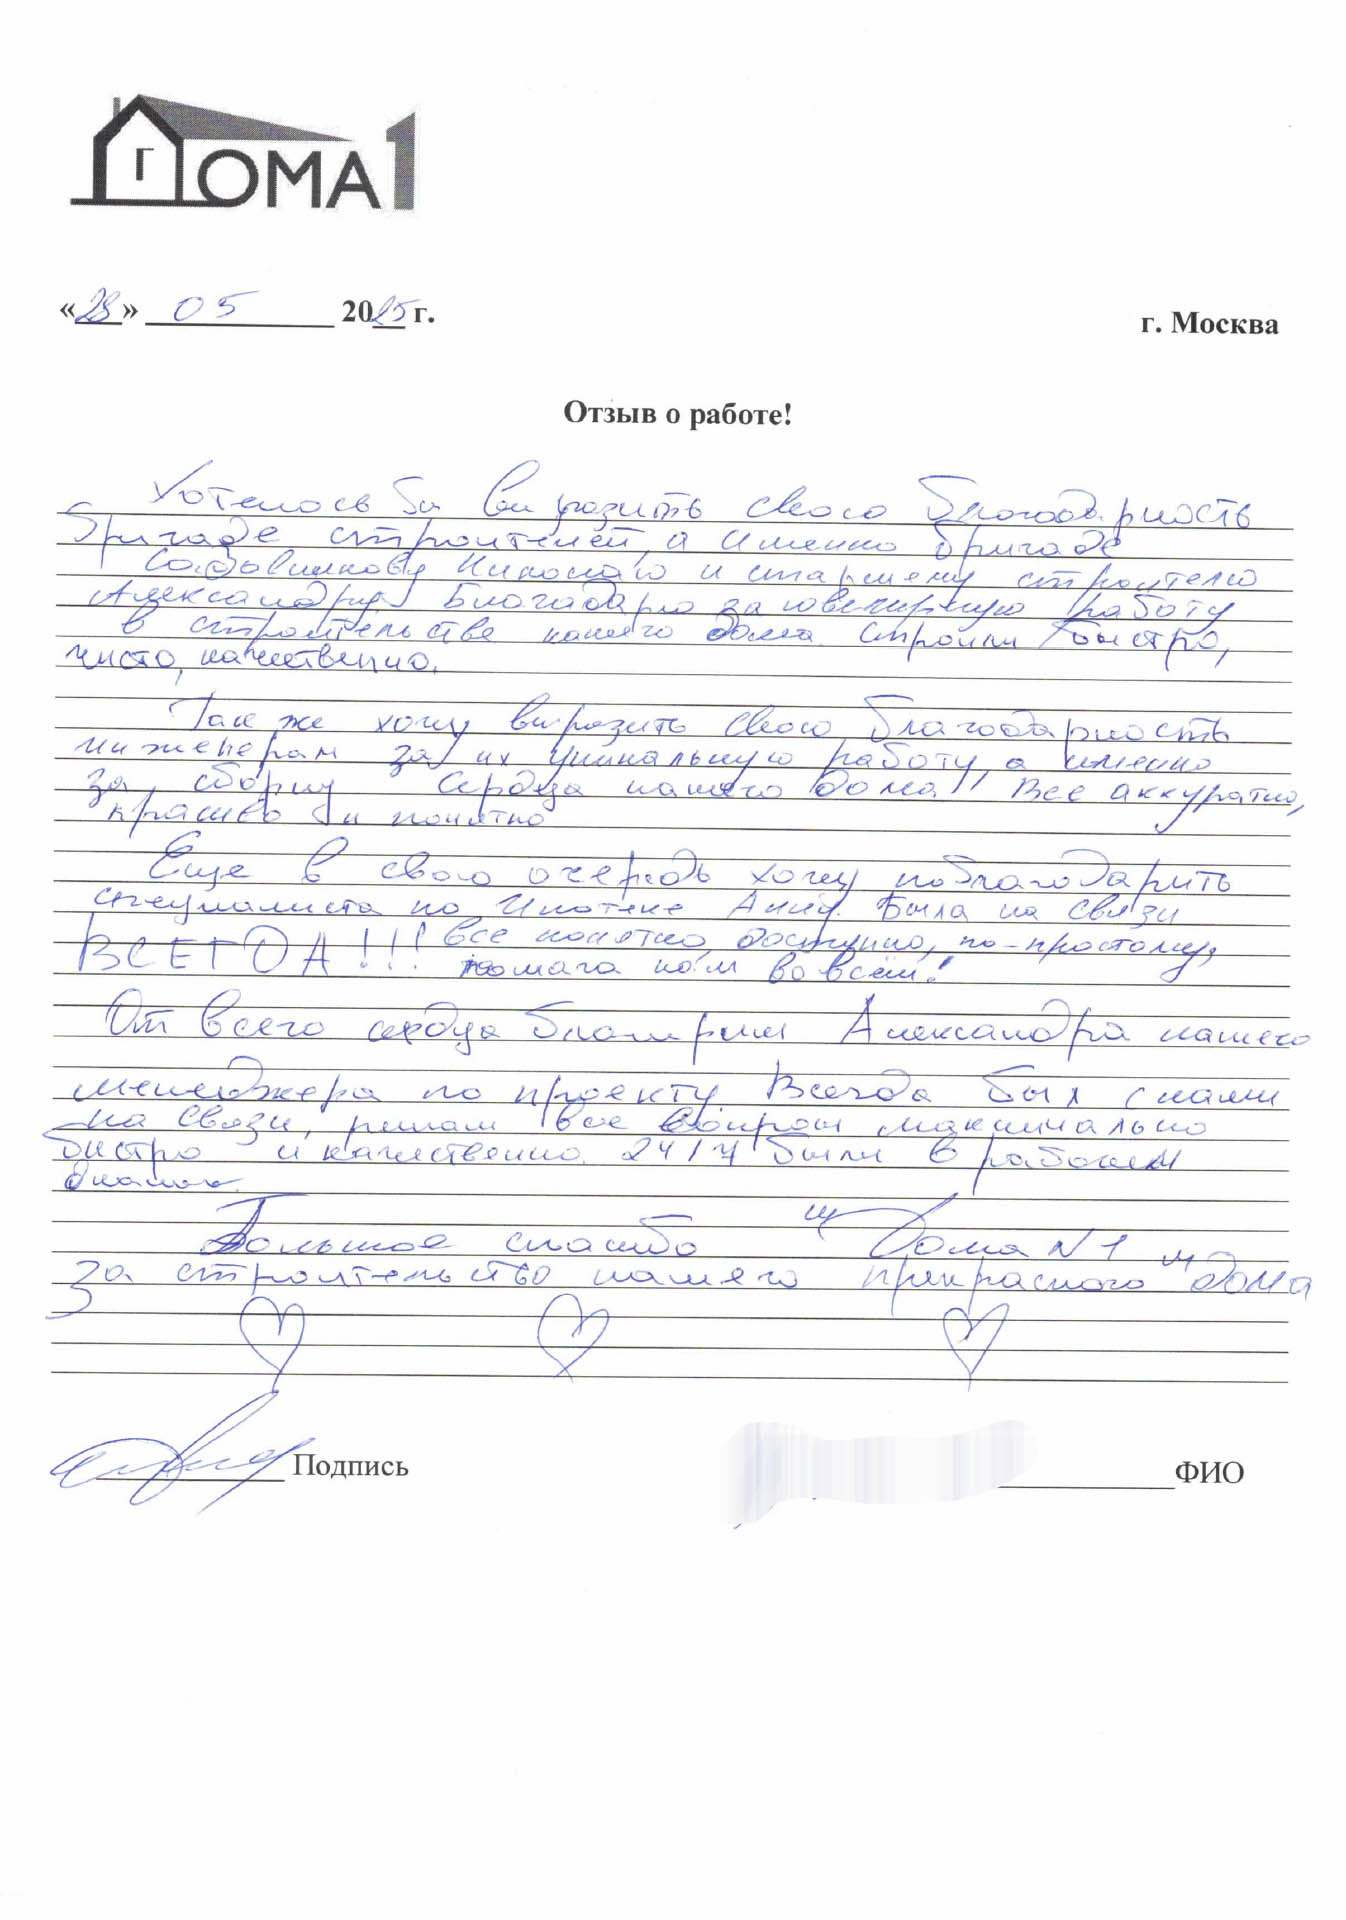 Г ДОМА 1
«28» 05 2025 г.
г. Москва
Отзыв о работе!
Хотелось бы выразить свою благодарность
бригаде строителей, а именно бригаде
Николаю и старшему строителю
Александру. Благодарю за ювелирную работу
в строительстве нашего дома. Строили быстро,
чисто, качественно.
Так же хочу выразить свою благодарность
инженерам за их уникальную работу, а именно
за сборку сердца нашего дома!! Все аккуратно,
красиво и понятно
Еще в свою очередь хочу поблагодарить
специалиста по Ипотеке Анну. Была на связи
ВСЕГДА!!! все понятно, доступно, по-простому,
помагала нам во всём!
От всего сердца Александра нашего
менеджера по проекту. Всегда был с нами
на связи, решал все вопросы максимально
быстро и качественно. 24/7 были в рабочем
Большое спасибо "Дома N1"
за строительство нашего прекрасного дома
Подпись
ФИО